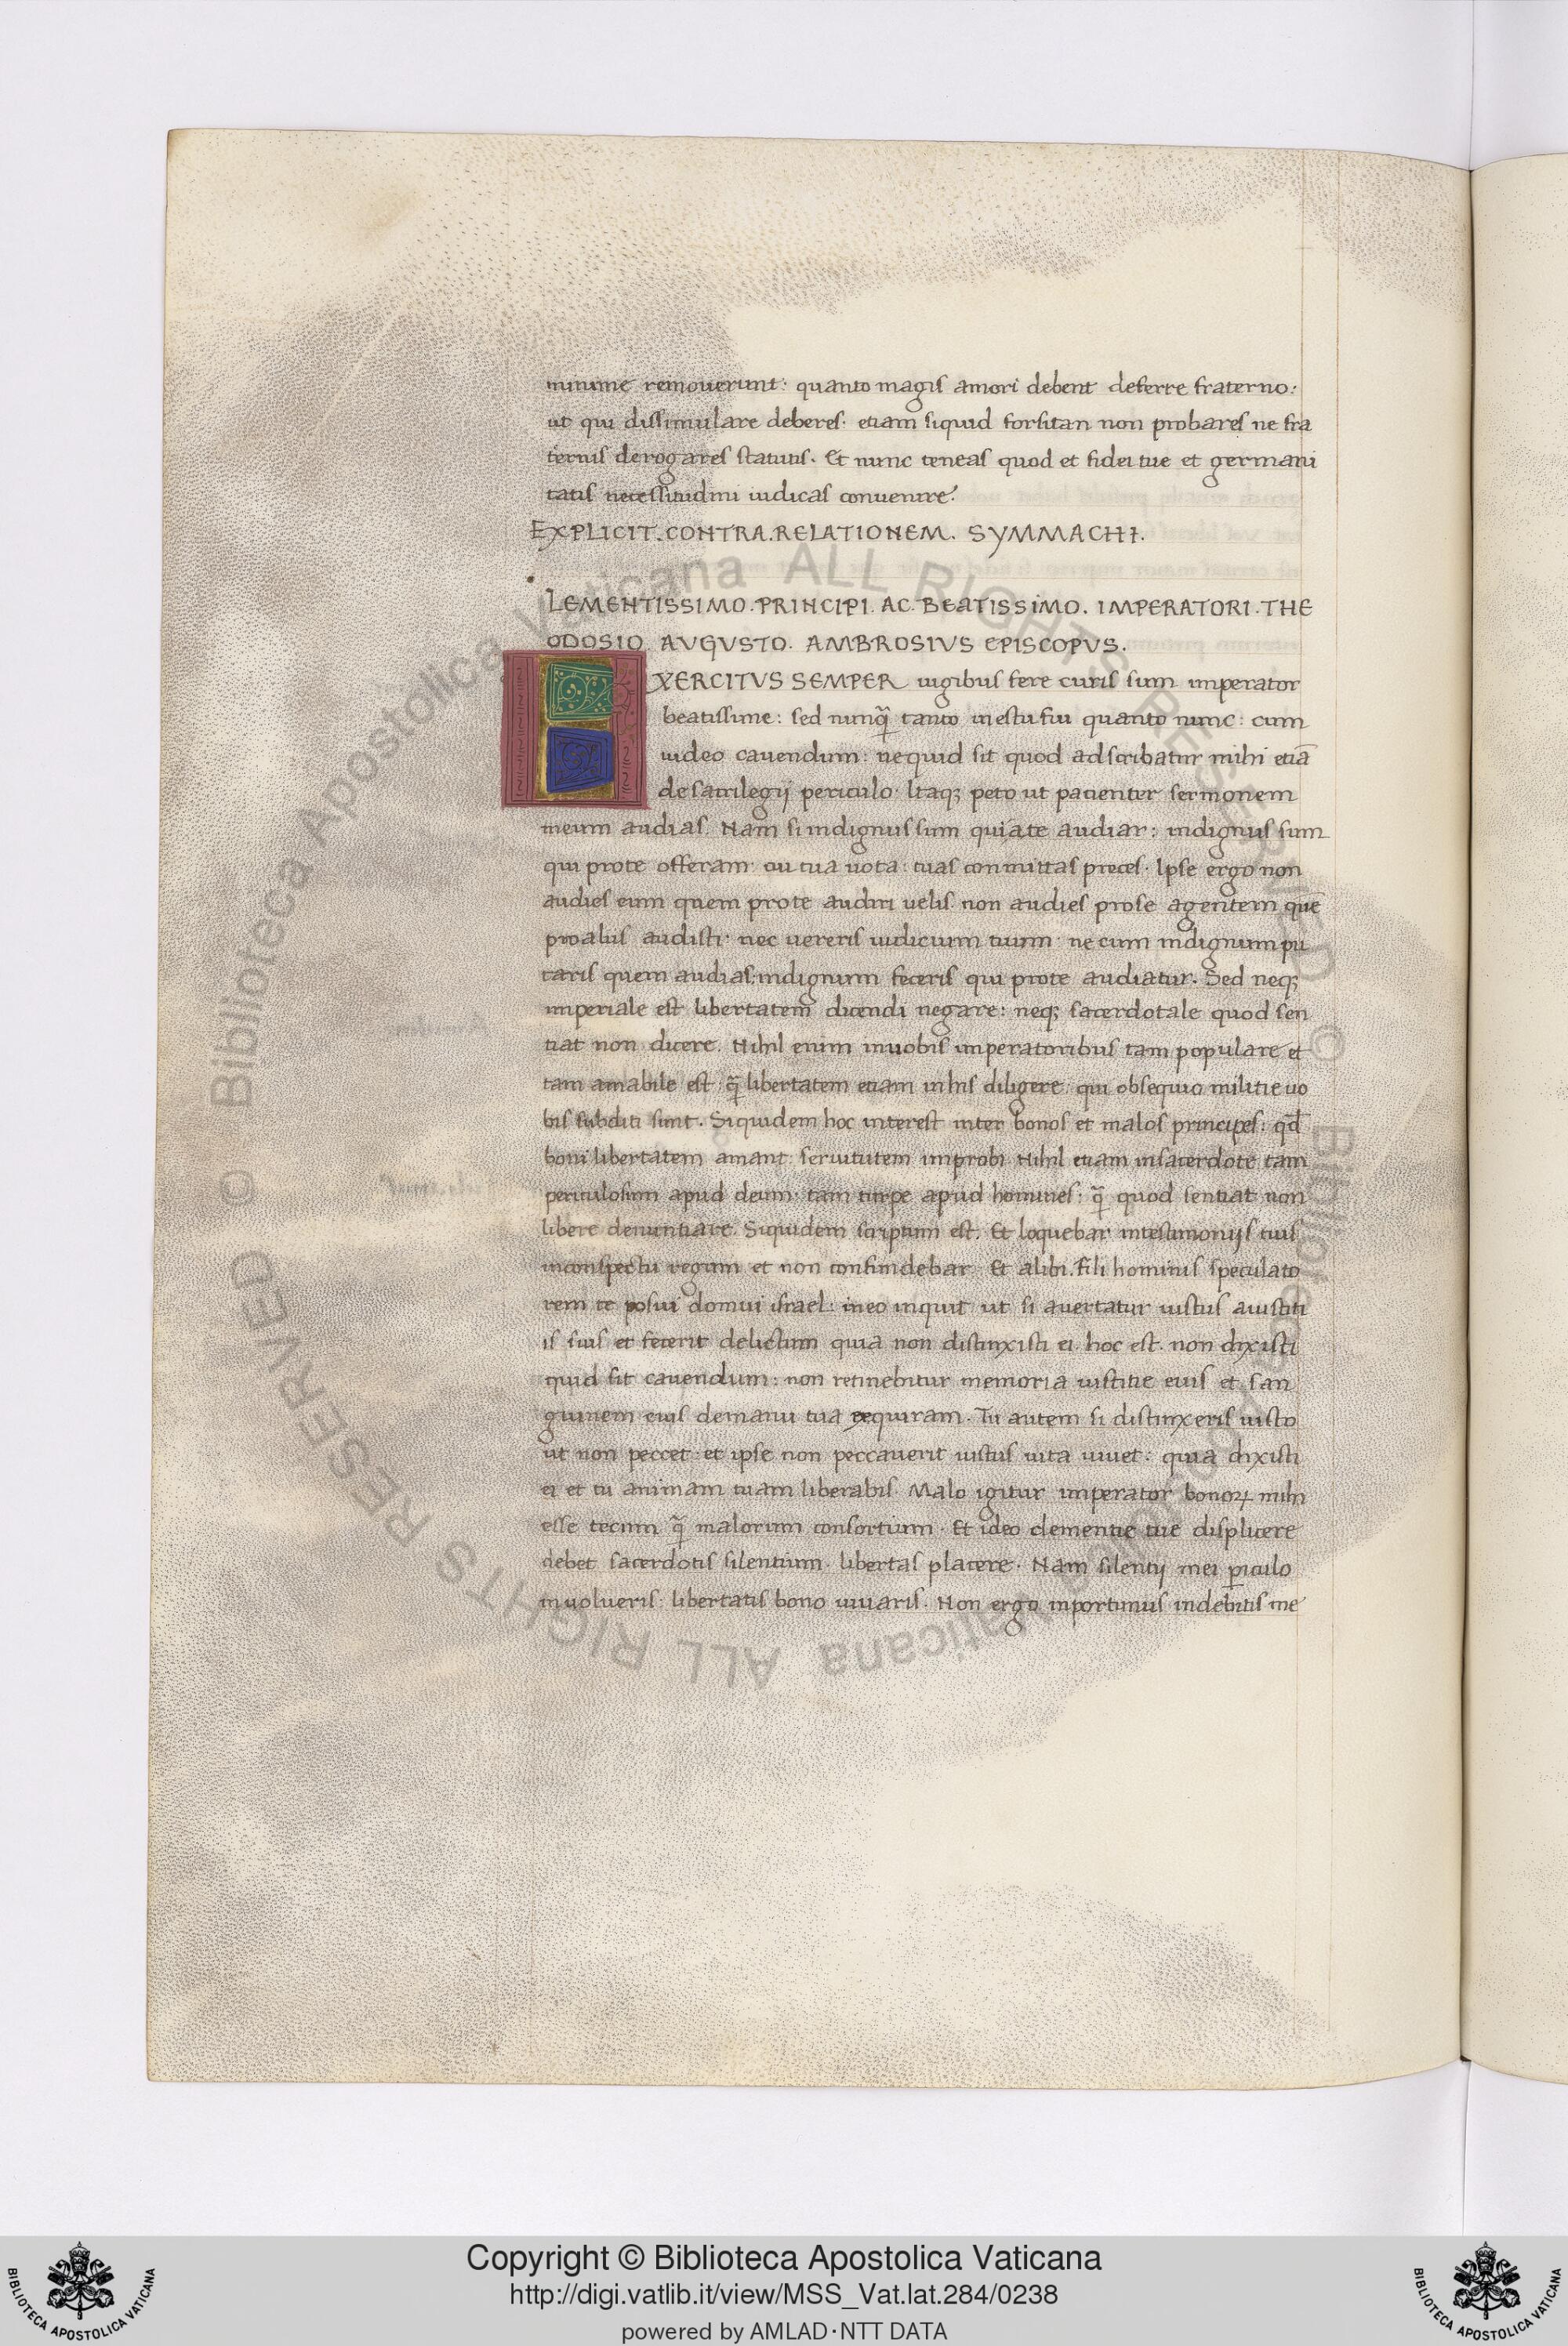 minime removerunt: quanto magis amori debent deferre fraterno:
ut qui dissimulare deberes. etiam siquid forsitan non probares ne fra
ternis derogares statutis. Et nunc teneas quod et fidei tue et germani
tatis necessitudini iudicas convenire.
EXPLICIT.CONTRA.RELATIONEM. SYMMACHI.
LEMENTISSIMO.PRINCIPI.AC.BEATISSIMO.IMPERATORI.THE
ODOSIO. AVGVSTO. AMBROSIVS EPISCOPVS.
EXERCITVS SEMPER iugibus fere curis sum imperator
beatissime: sed nunq̃ tanto inestu fui quanto nunc: cum
uideo cauendum: nequid sit quod adscribatur mihi etiā
de sacrilegij periculo. Itaq; peto ut patienter sermonem
meum audias. Nam si indignus sum qui ate audiar: indignus sum
qui prote offeram. cui tua uota: tuas committas preces. Ipse ergo non
audies eum quem prote audiri uelis. non audies prose agentem quē
proaliis audisti. nec uereris iudicium tuum. ne cum indignum pu
taris quem audias, indignum feceris qui prote audiatur. Sed neq;
imperiale est libertatem dicendi negare: neq; sacerdotale quod sen
tiat non dicere. Nihil enim inuobis imperatoribus tam populare et
tam amabile est. q̃ libertatem etiam inhis diligere. qui obsequio militie uo
bis subditi sunt. Siquidem hoc interest inter bonos et malos principes: qđ
boni libertatem amant. seruitutem improbi. Nihil etiam insacerdote tam
periculosum apud deum: tam turpe apud homines: q̃ quod sentiat non
libere denuntiare. Siquidem scriptum est. Et loquebar intestimonijs tuis
inconspectu regum et non confundebar. Et alibi. Fili hominis speculato
rem te posui domui israel: ineo inquit ut si auertatur iustus aiustiti
is suis et fecerit delictum quia non distinxisti ei. hoc est. non dixisti
quid sit cauendum: non retinebitur memoria iustitie eius et san
guinem eius demanu tua exquiram. Tu autem si distinxeris iusto
ut non peccet. et ipse non peccauerit iustus uita uiuet: quia dixisti
ei et tu animam tuam liberabis. Malo igitur imperator bonoꝝ mihi
esse tecum q̃ malorum consortium. Et ideo clementie tue displicere
debet sacerdotis silentium. libertas placere. Nam silentij mei ꝑiculo
inuolueris: libertatis bono iuuaris. Non ergo inportunus indebitis me
© Biblioteca Apostolica Vaticana ALL RIGHTS RESERVED © Biblioteca Apostolica Vaticana ALL RIGHTS RESERVED
Copyright © Biblioteca Apostolica Vaticana
http://digi.vatlib.it/view/MSS_Vat.lat.284/0238
powered by AMLAD·NTT DATA
BIBLIOTECA APOSTOLICA VATICANA
BIBLIOTECA APOSTOLICA VATICANA